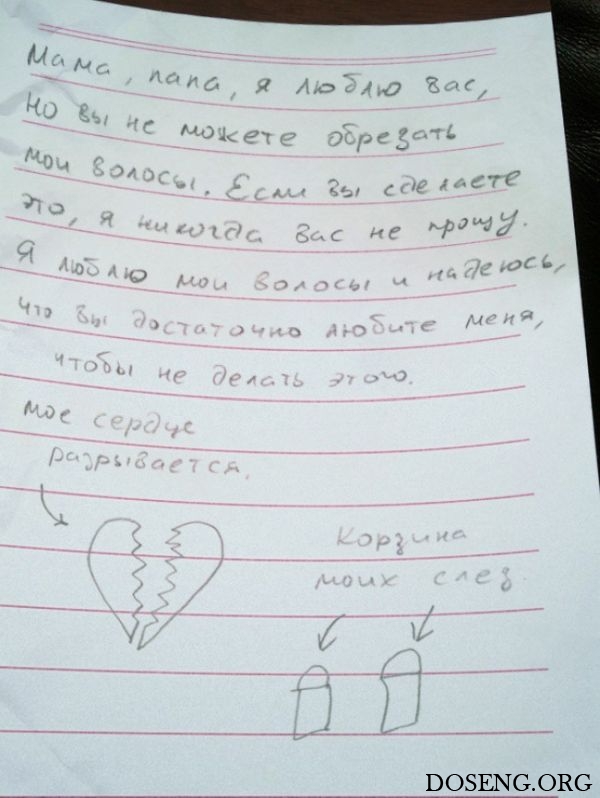 Мама, папа, я люблю вас,
но вы не можете обрезать
мои волосы. Если вы сделаете
это, я никогда вас не прощу.
Я люблю мои волосы и надеюсь,
что вы достаточно любите меня,
чтобы не делать этого.
мое сердце
разрывается.
Корзина
моих слез
DOSENG.ORG